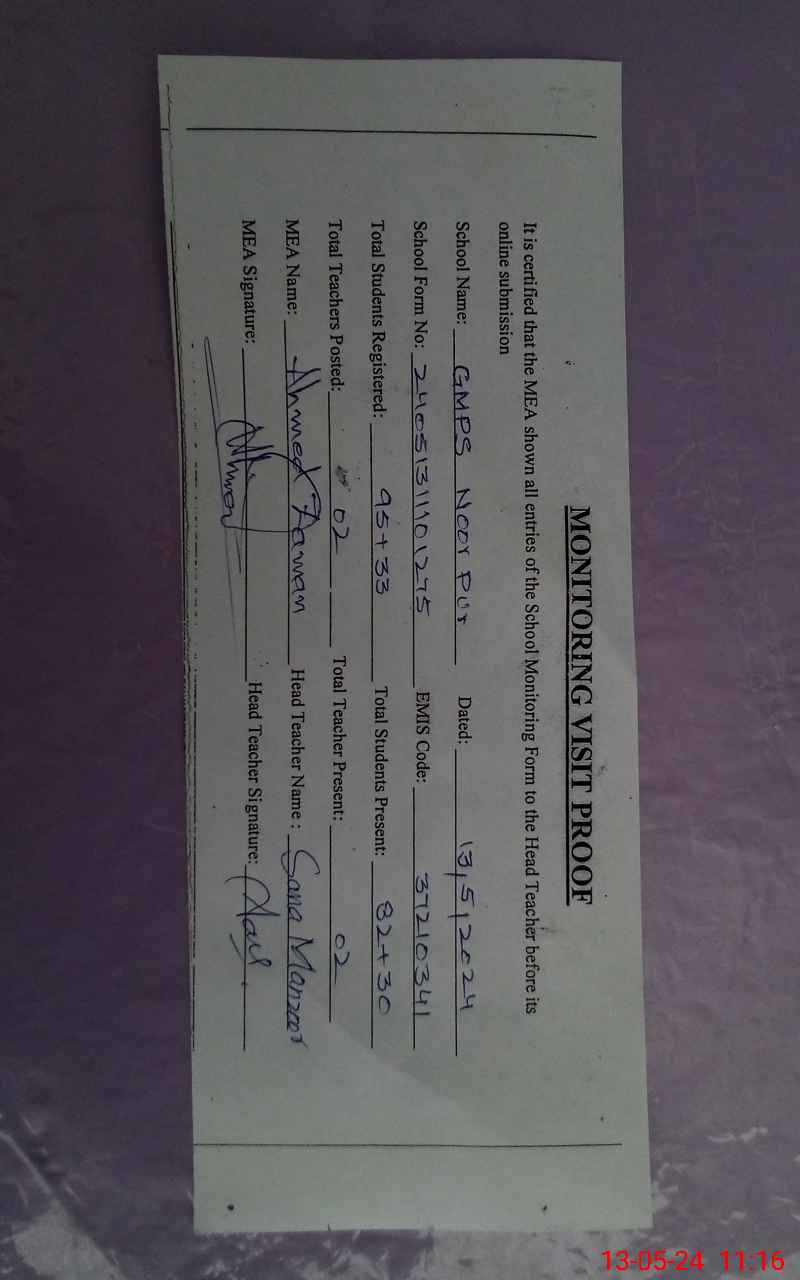 MONITORING VISIT PROOF
It is certified that the MEA shown all entries of the School Monitoring Form to the Head Teacher before its
online submission
School Name: GMPS Noor Pur Dated: 13,5,2024
School Form No: 2405131101275 EMIS Code: 37210341
Total Students Registered: 95+33 Total Students Present: 82+30
Total Teachers Posted: 02 Total Teacher Present: 02
MEA Name: Ahmed Head Teacher Name : Sana Manzoor
MEA Signature: Head Teacher Signature:
13-05-24 11:16